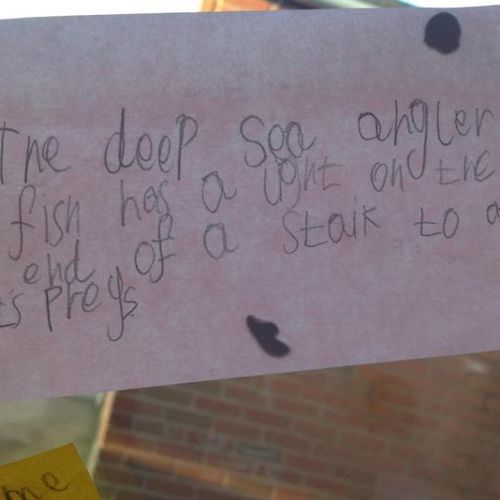 The deep sea angler
fish has a light on the
end of a stalk to a
ts preys
me